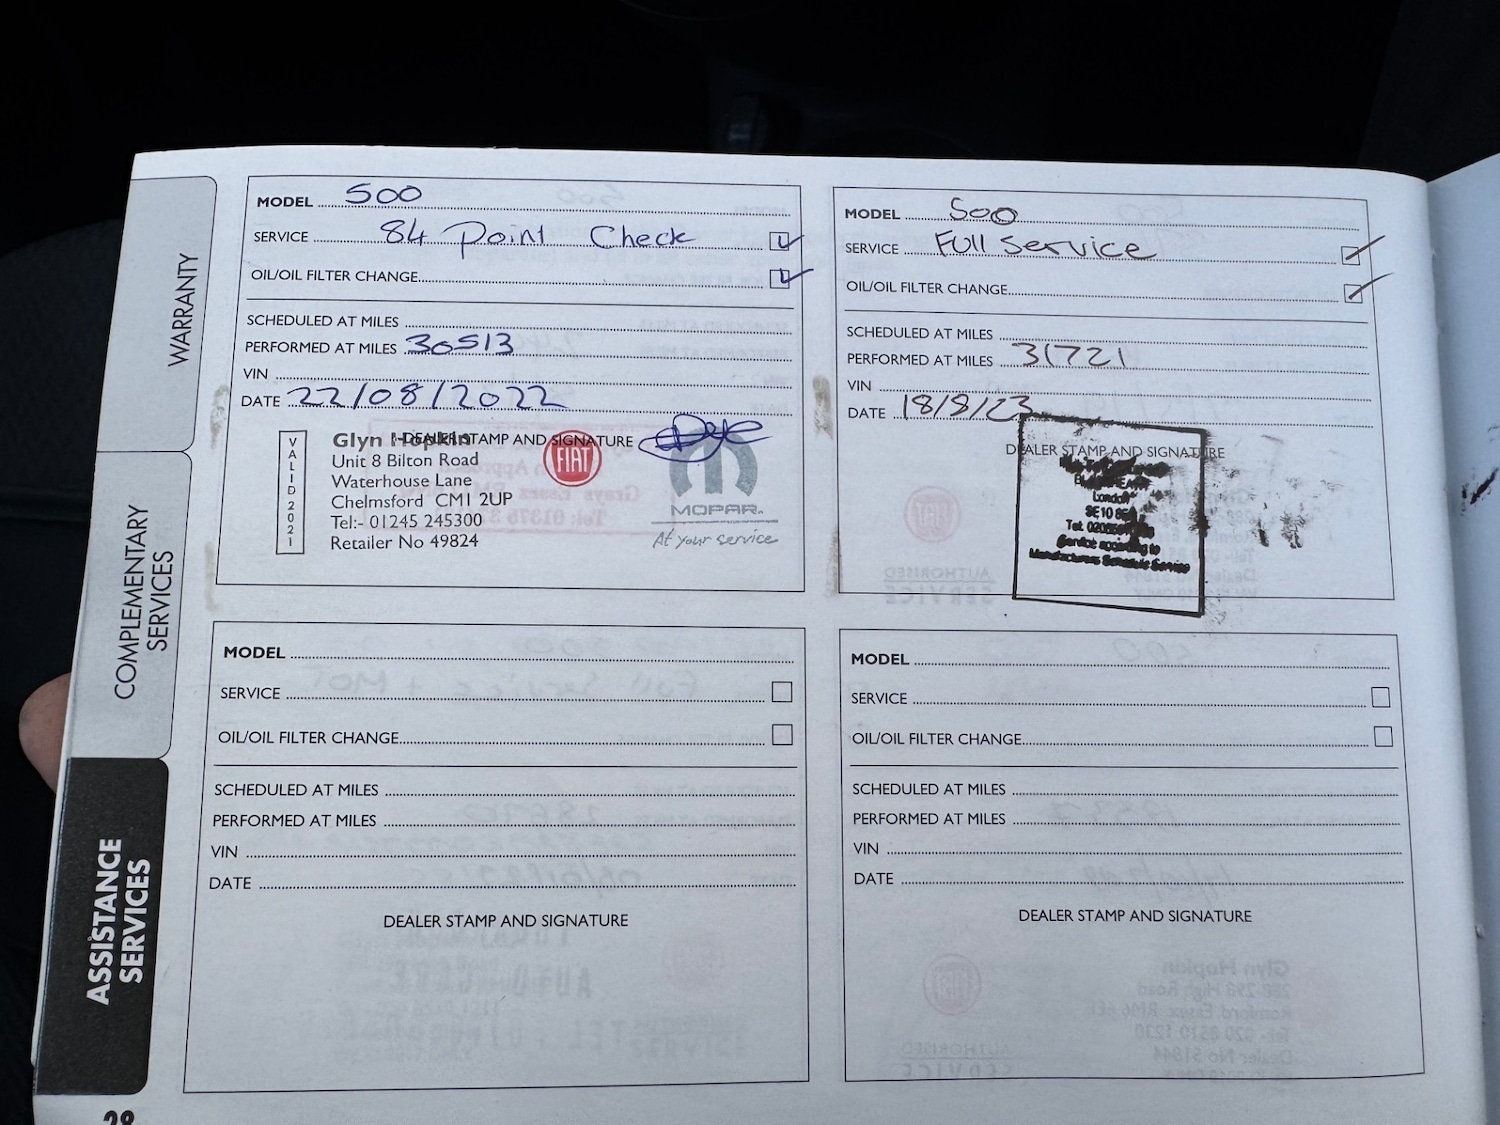 WARRANTY
COMPLEMENTARY
SERVICES
ASSISTANCE
SERVICES
28
MODEL 500
SERVICE 84 Point Check
OIL/OIL FILTER CHANGE
SCHEDULED AT MILES
PERFORMED AT MILES 30513
VIN
DATE 22/08/2022
DEALER STAMP AND SIGNATURE
VALID 2021
Glyn Hopkin
Unit 8 Bilton Road
Waterhouse Lane
Chelmsford CM1 2UP
Tel:- 01245 245300
Retailer No 49824
FIAT
MOPAR
At your service
MODEL 500
SERVICE Full Service
OIL/OIL FILTER CHANGE
SCHEDULED AT MILES
PERFORMED AT MILES 31721
VIN
DATE 18/8/23
DEALER STAMP AND SIGNATURE
London
SE10
Tel:
Service according to
Manufacturers Schedule Service
MODEL
SERVICE
OIL/OIL FILTER CHANGE
SCHEDULED AT MILES
PERFORMED AT MILES
VIN
DATE
DEALER STAMP AND SIGNATURE
MODEL
SERVICE
OIL/OIL FILTER CHANGE
SCHEDULED AT MILES
PERFORMED AT MILES
VIN
DATE
DEALER STAMP AND SIGNATURE